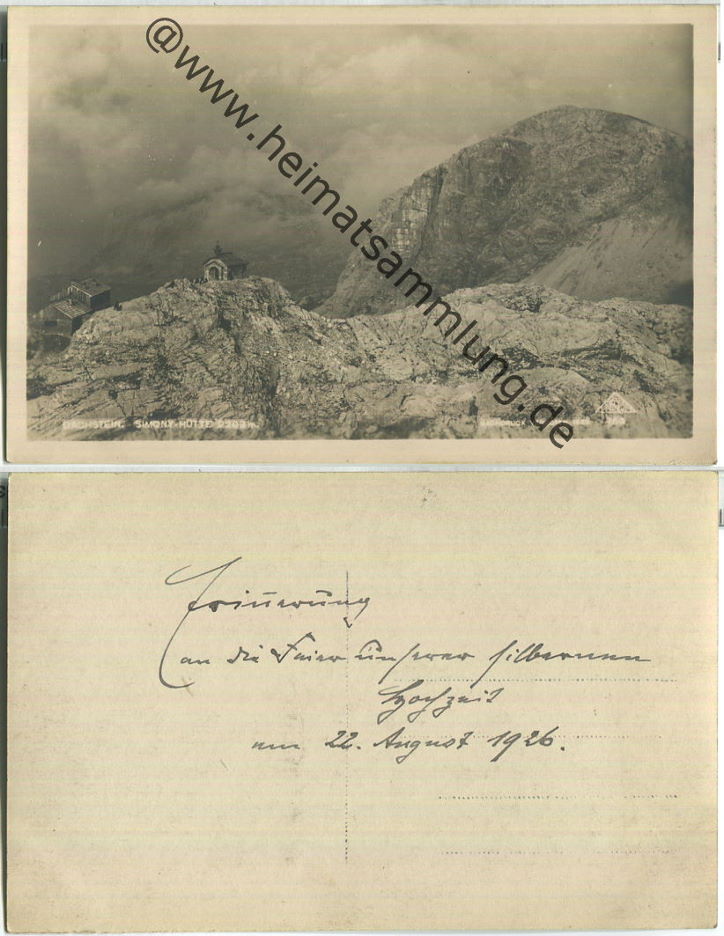 @www.heimatsammlung.de
DACHSTEIN. SIMONY-HÜTTE 2203 m.
Erinnerung
an die Feier unserer silbernen
Hochzeit
am 22. August 1926.